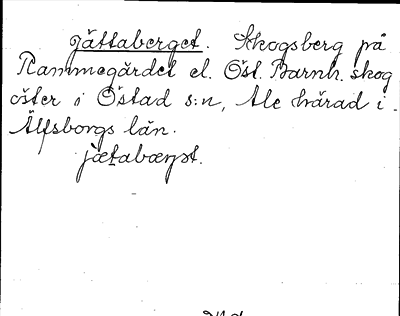 Jättaberget. Skogsberg på
Rammegärdet el. Öst. Barnh. skog
öster i Östad s:n, Ale härad i
Älfsborgs län.